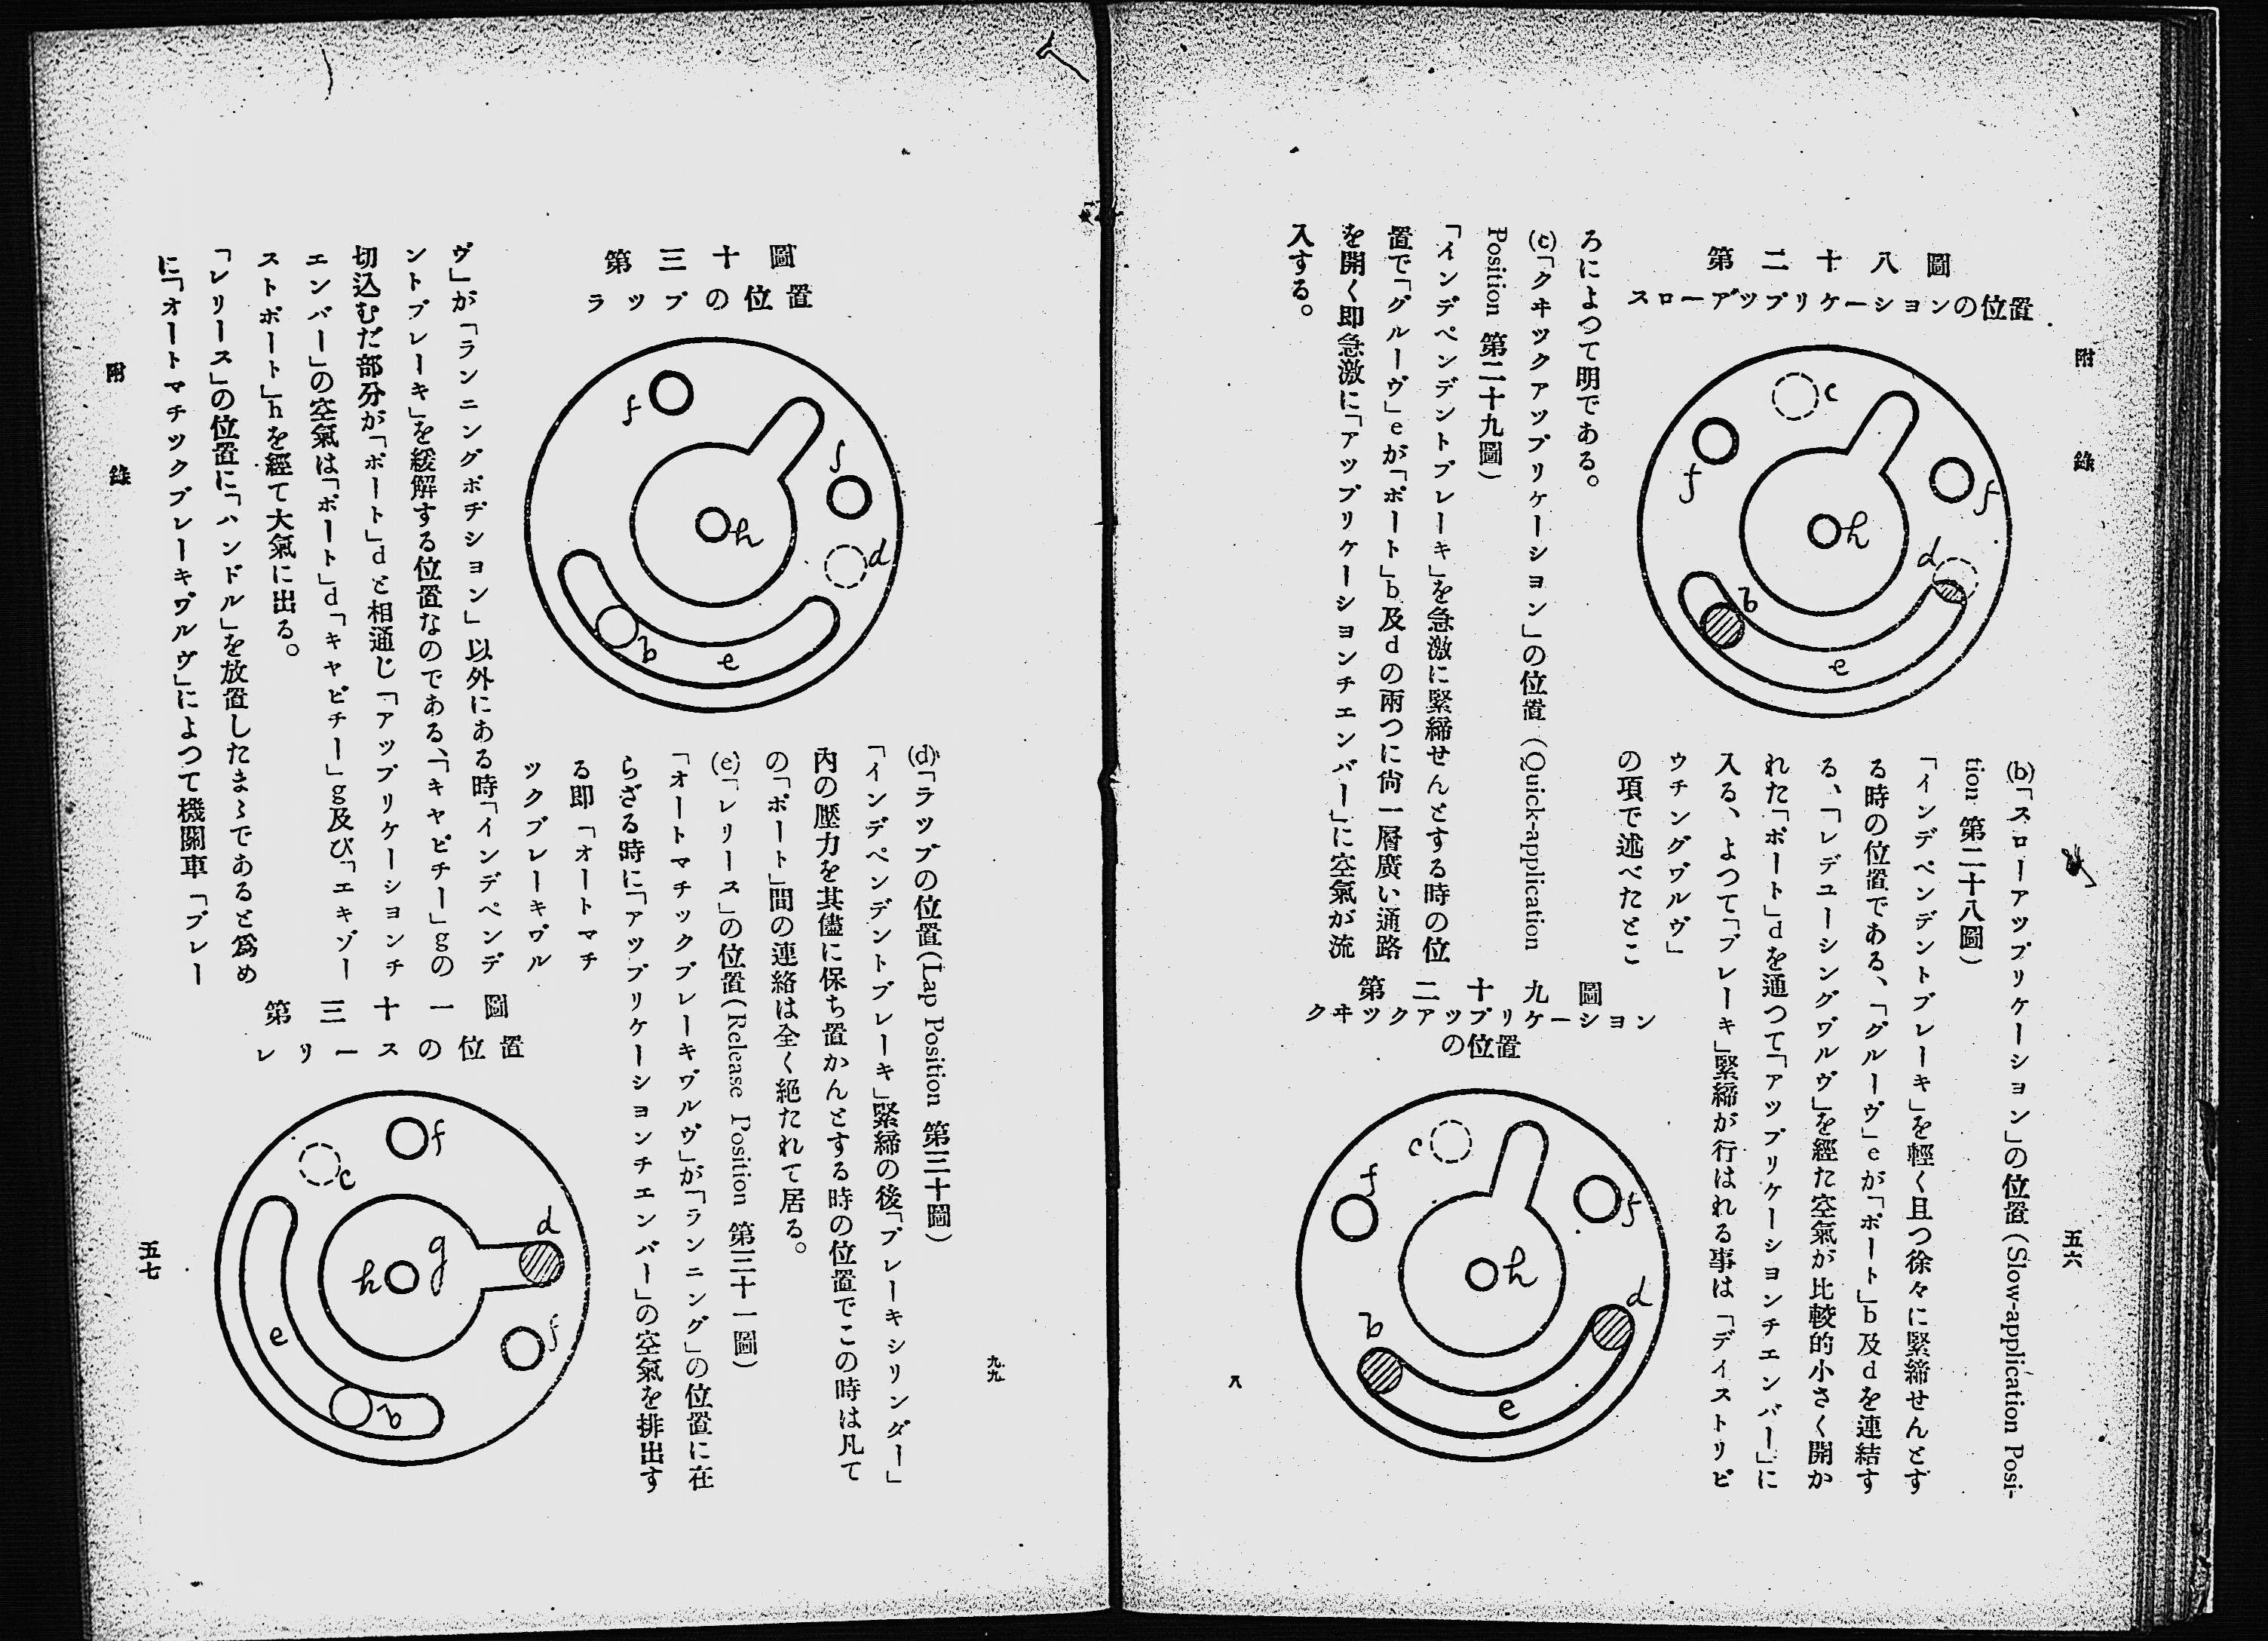 附錄
五六
第二十八圖
スローアツプリケーションの位置
c
f
f
h
d
b
e
(b)「スローアツプリケーション」の位置 (Slow-application Posi-
tion 第二十八圖)
「インデペンデントブレーキ」を輕く且つ徐々に緊締せんとす
る時の位置である、「グルーヴ」eが「ポート」b及dを連結す
る、「レデユーシングヴルヴ」を經た空氣が比較的小さく開か
れた「ポート」dを通つて「アツプリケーションチエンバー」に
入る、よつて「ブレーキ」緊締が行はれる事は「デイストリビ
ウチングヴルヴ」
の項で述べたとこ
ろによつて明である。
(c)「クヰツクアツプリケーション」の位置 (Quick-application
Position 第二十九圖)
「インデペンデントブレーキ」を急激に緊締せんとする時の位
置で「グルーヴ」eが「ポート」b及dの兩つに尙一層廣い通路
を開く即急激に「アツプリケーションチエンバー」に空氣が流
入する。
第二十九圖
クヰツクアツプリケーション
の位置
c
f
f
h
d
b
e
八
九九
第三十圖
ラップの位置
f
f
h
d
b
e
(d)「ラツプの位置(Lap Position 第三十圖)
「インデペンデントブレーキ」緊締の後「ブレーキシリンダー」
內の壓力を其儘に保ち置かんとする時の位置でこの時は凡て
の「ポート」間の連絡は全く絕たれて居る。
(e)「レリース」の位置(Release Position 第三十一圖)
「オートマチックブレーキヴルヴ」が「ランニング」の位置に在
らざる時に「アツプリケーションチエンバー」の空氣を排出す
る即「オートマチ
ツクブレーキヴル
ヴ」が「ランニングポヂション」以外にある時「インデペンデ
ントブレーキ」を緩解する位置なのである、「キヤビチー」gの
切込むだ部分が「ポート」dと相通じ「アツプリケーションチ
エンバー」の空氣は「ポート」d「キヤビチー」g及び「エキゾー
ストポート」hを經て大氣に出る。
「レリース」の位置に「ハンドル」を放置したまゝであると爲め
に「オートマチツクブレーキヴルヴ」によつて機關車「ブレー
第三十一圖
レリースの位置
f
c
d
g
h
f
e
b
附錄
五七